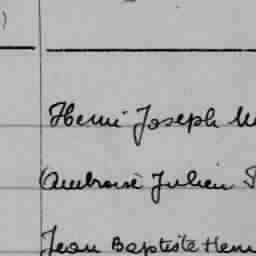 )
Henri Joseph
Ambroise Julien
Jean Baptiste Henri